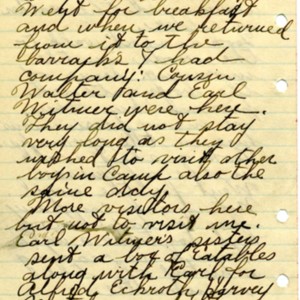 Went for breakfast
and when we returned
from it to the
barracks I had
company: Cousin
Walter and Earl
Witmer were here.
They did not stay
very long as they
wished to visit other
boys in Camp also the
same day.
More visitors here
but not to visit me.
Earl Witmer's sisters
sent a box of Eatables
along with Earl, for
Alfred Eckroth, Harvey